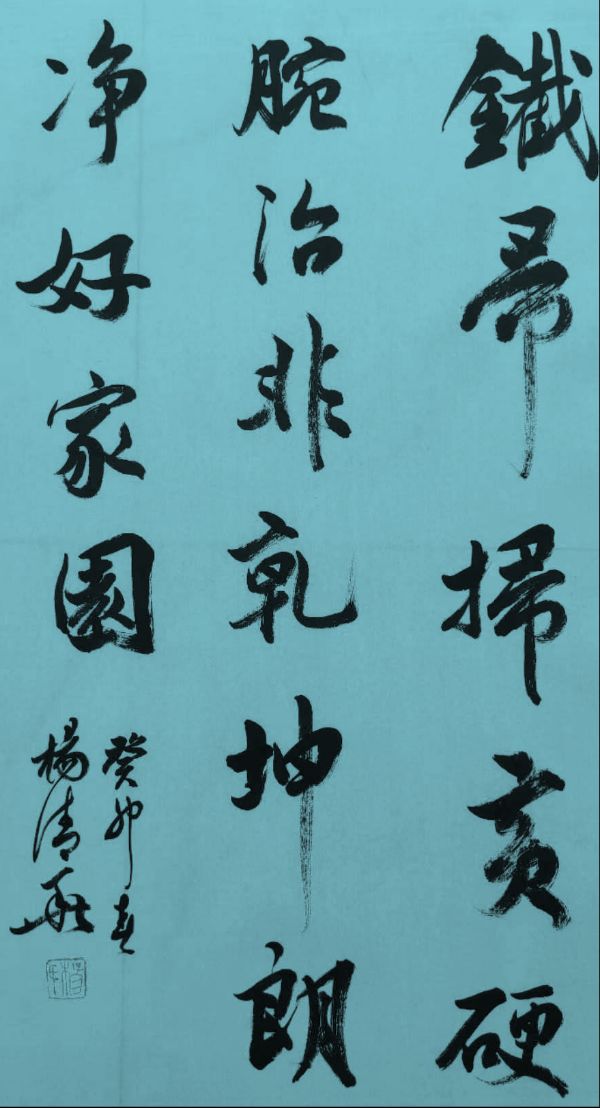 鐵帚掃黄硬
腕治非乾坤朗
净好家園
癸卯春
楊清